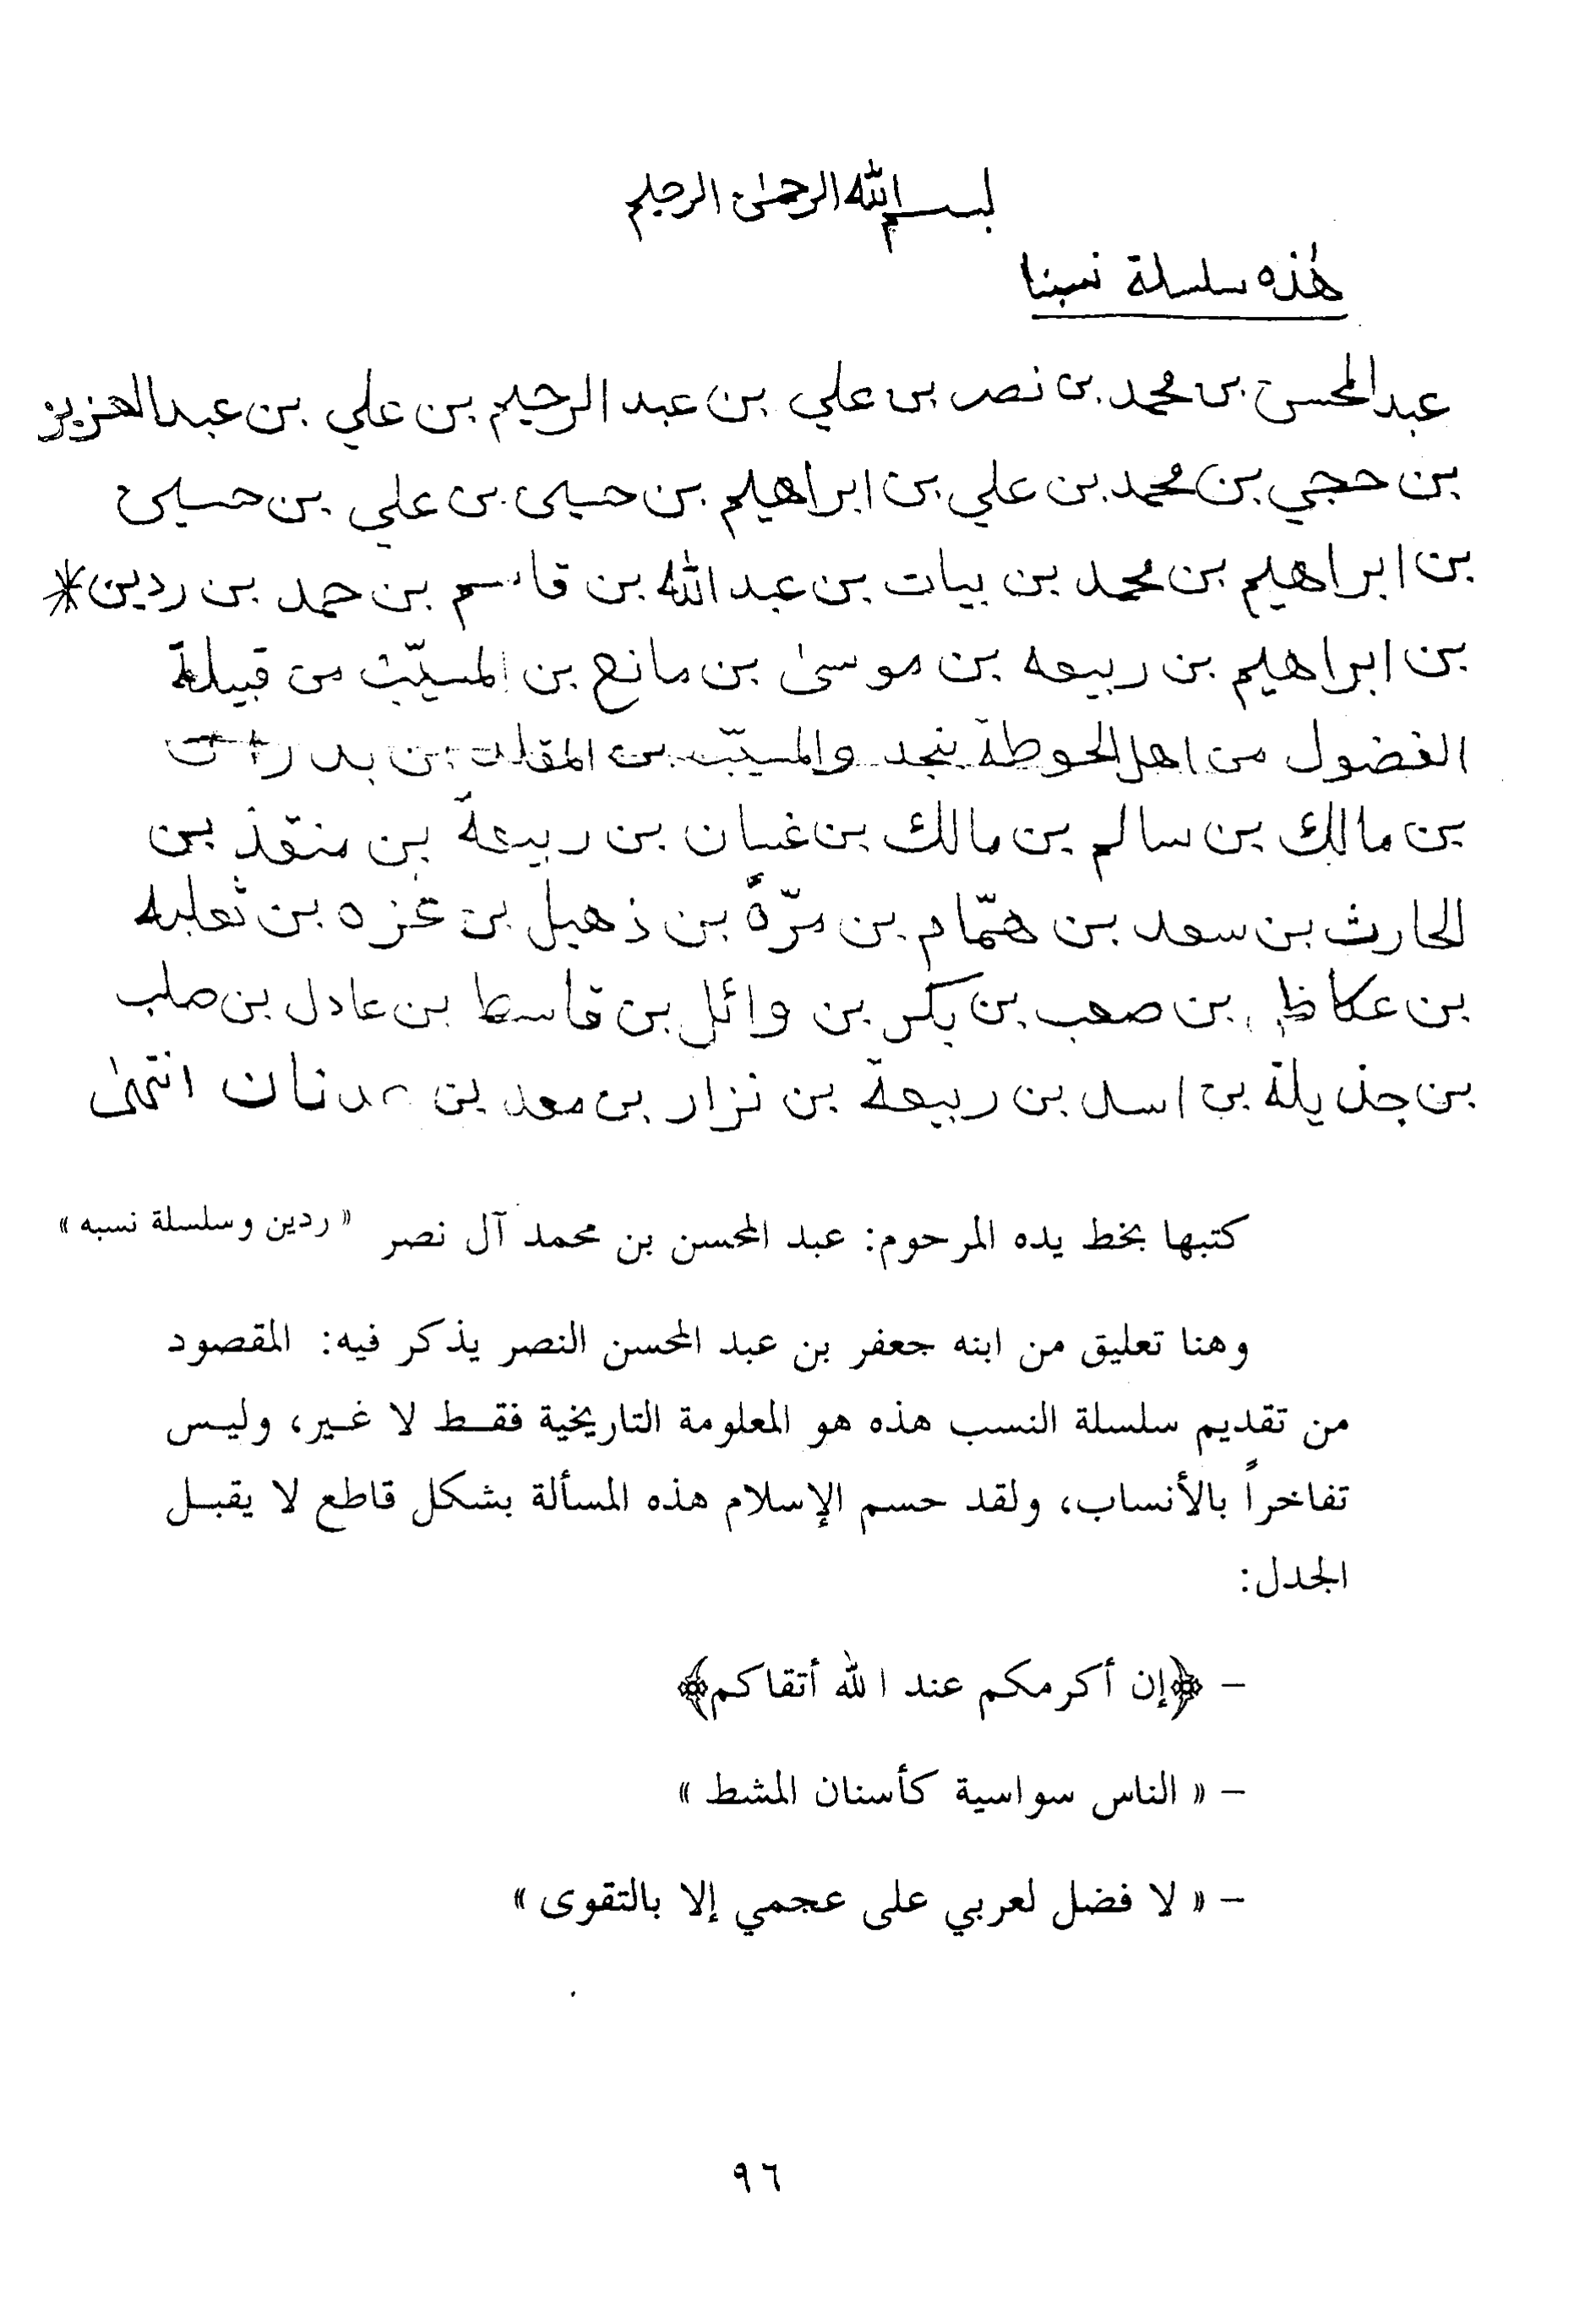 بسم الله الرحمٰن الرحيم
هٰذه سلسلة نسبنا
عبدالمحسن بن محمد بن نصر بن علي بن عبد الرحيم بن علي بن عبدالعزيز
بن حجي بن محمد بن علي بن ابراهيم بن حسين بن علي بن حسين
بن ابراهيم بن محمد بن بيات بن عبد الله بن قاسم بن حمد بن ردين*
بن ابراهيم بن ربيعه بن موسىٰ بن مانع بن المسيّب من قبيلة
الفضول من اهل الحوطة بنجد والمسيّب بن المقلد بن بدران
بن مالك بن سالم بن مالك بن غسان بن ربيعة بن منقذ بن
الحارث بن سعد بن همّام بن مرّة بن ذهيل بن عنزه بن ثعلبه
بن عكاظ بن صعب بن بكر بن وائل بن قاسط بن عادل بن صلب
بن جذيلة بن اسد بن ربيعة بن نزار بن معد بن عدنان انتهىٰ
كتبها بخط يده المرحوم: عبد المحسن بن محمد آل نصر « ردين وسلسلة نسبه »
وهنا تعليق من ابنه جعفر بن عبد المحسن النصر يذكر فيه: المقصود
من تقديم سلسلة النسب هذه هو المعلومة التاريخية فقط لا غير، وليس
تفاخراً بالأنساب، ولقد حسم الإسلام هذه المسألة بشكل قاطع لا يقبل
الجدل:
– ﴿إن أكرمكم عند الله أتقاكم﴾
– « الناس سواسية كأسنان المشط »
– « لا فضل لعربي على عجمي إلا بالتقوى »
٩٦